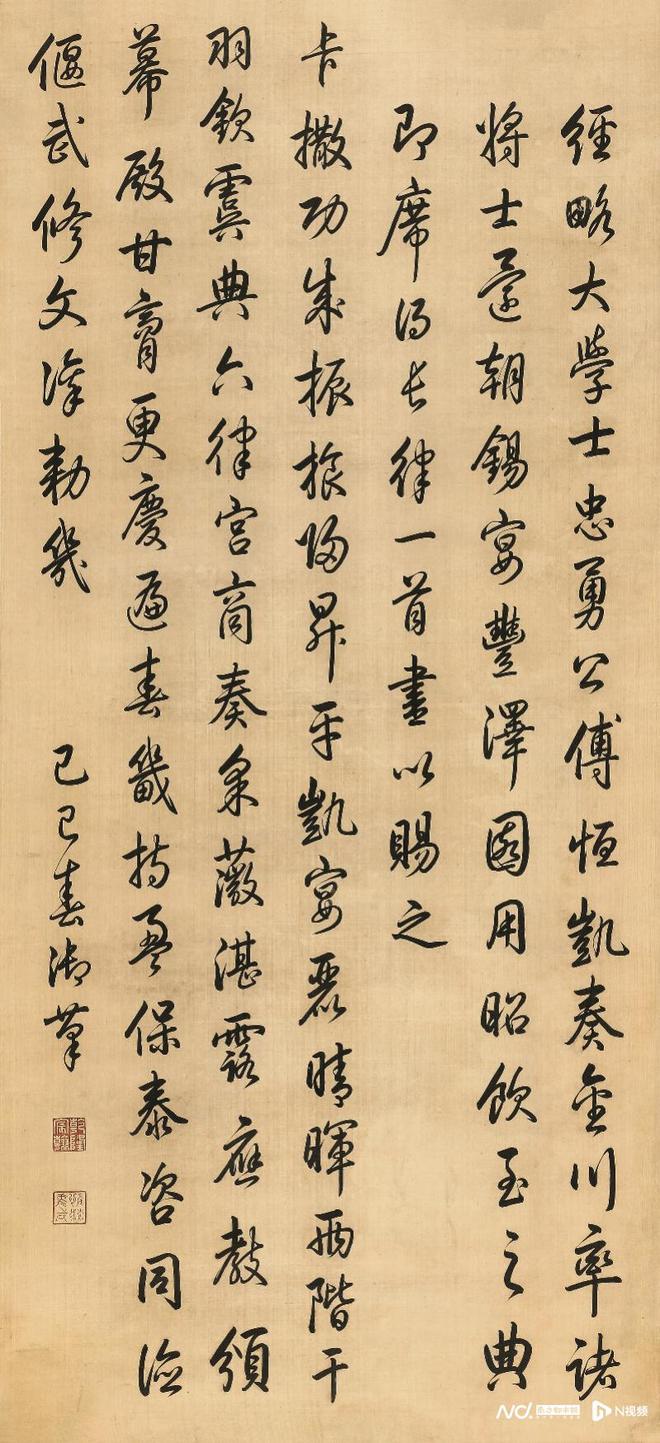 經略大學士忠勇公傅恒凱奏金川率諸
將士還朝錫宴豐澤園用昭飲至之典
即席得長律一首書以賜之
卡撒功成振旅歸昇平凱宴麗晴暉兩階干
羽欽虞典六律宮商奏采薇湛露應教頒
幕殿甘膏更慶遍春畿持盈保泰咨同德
偃武修文凜勅幾
己巳春御筆
乾隆宸翰
N视频